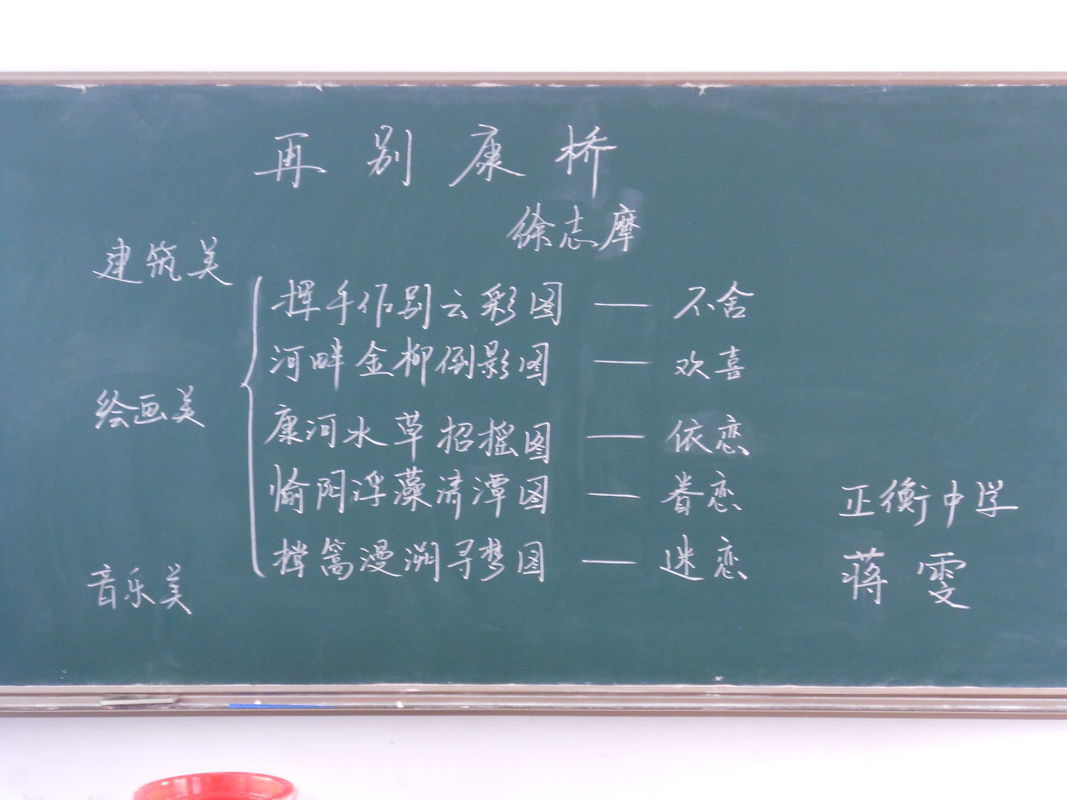 再别康桥
徐志摩
建筑美
挥手作别云彩图 — 不舍
河畔金柳倒影图 — 欢喜
绘画美
康河水草招摇图 — 依恋
愉阳浮藻清潭图 — 眷恋
正衡中学
撑篙漫溯寻梦图 — 迷恋
蒋雯
音乐美